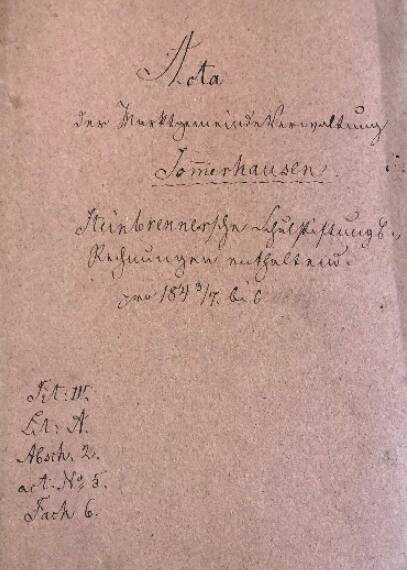 Acta
der Marktgemeinde Verwaltung
Som̅erhausen.
Steinbrenner'sche Schulstiftungs-
Rechnungen enthaltend.
pro 184 3/7. bis
Tit: IV.
Lit: A.
Absch. 2.
act. No 5.
Fach 6.